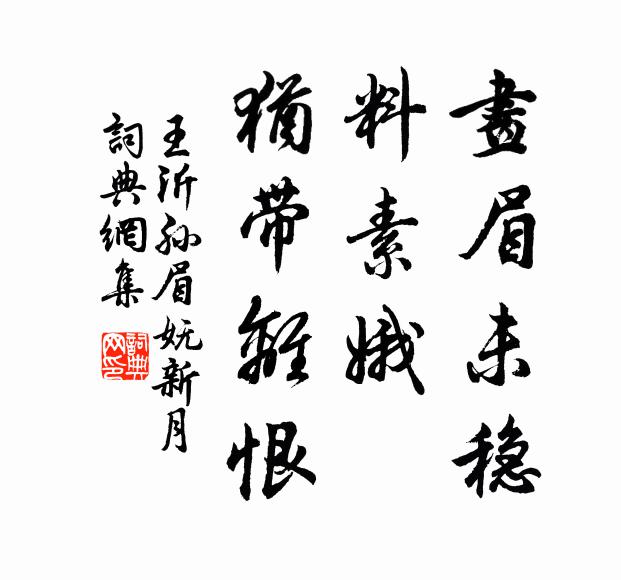 畫眉未穩
料素娥
猶帶離恨
王沂孫眉妩新月
詞典網集
詞典
网印